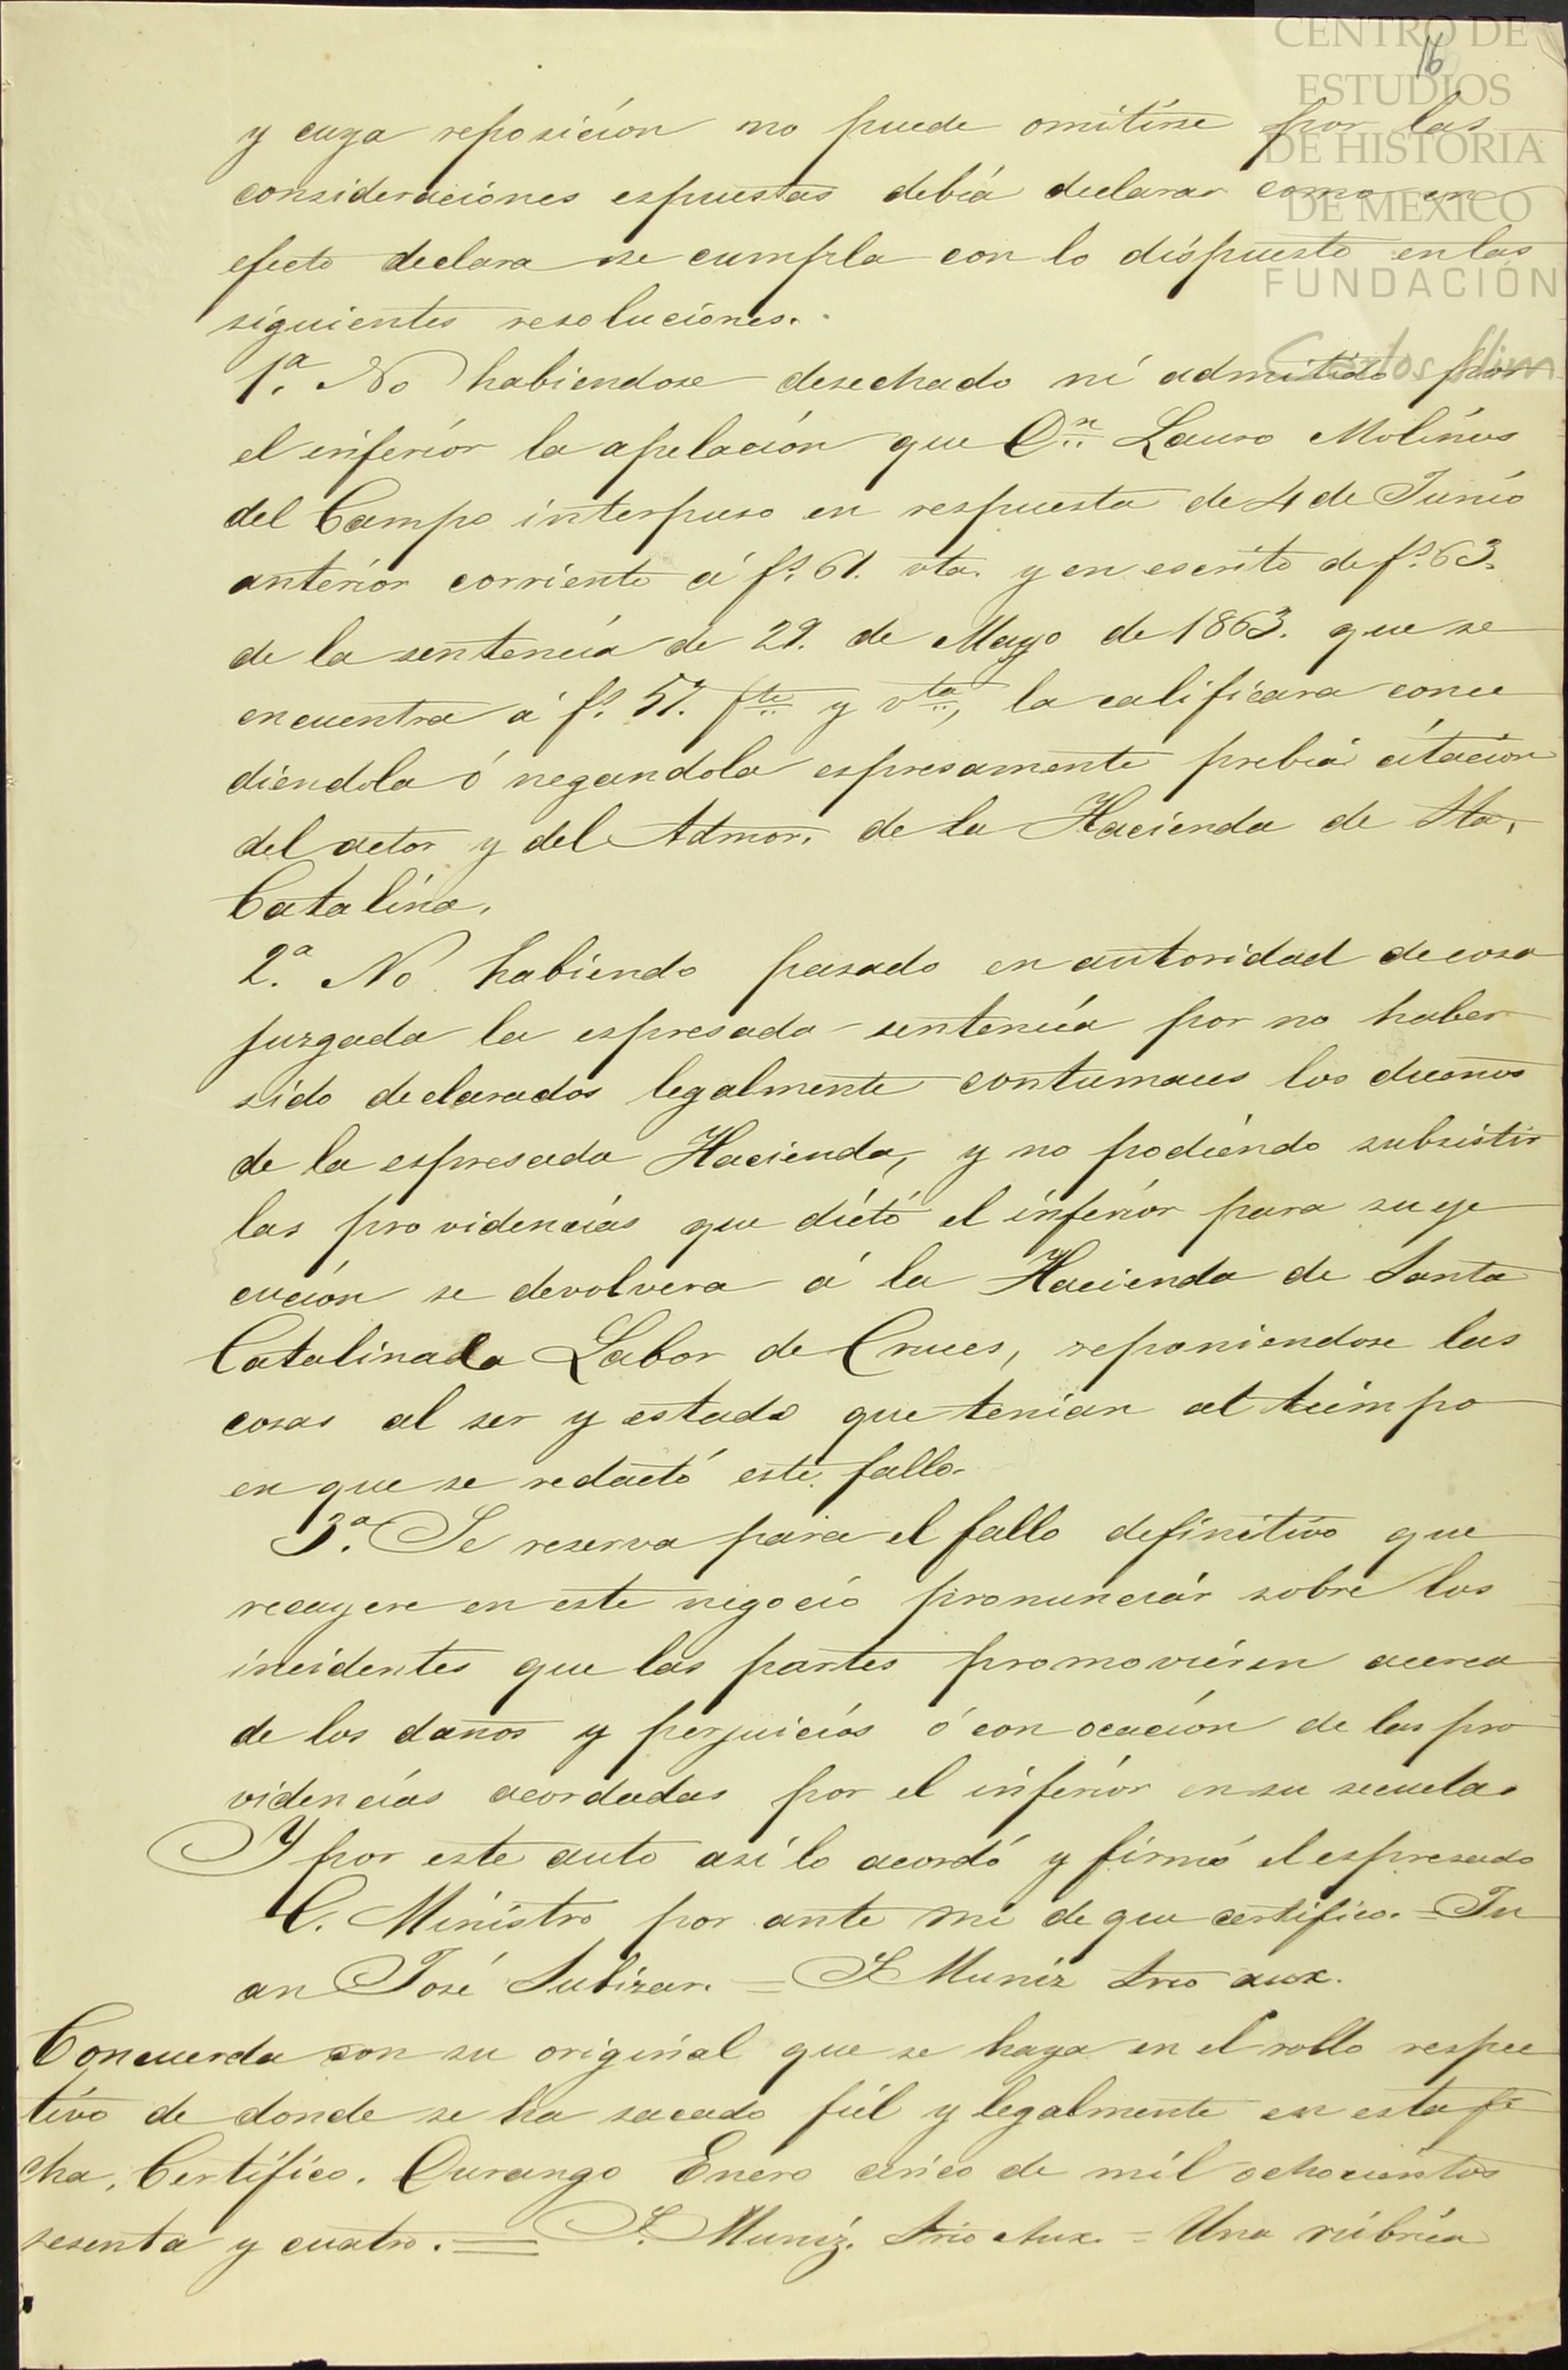 CENTRO DE
ESTUDIOS
DE HISTORIA
DE MEXICO
FUNDACIÓN
Carlos Slim
16
y cuya reposición no puede omitirse por las
consideraciónes espuestas debia declarar como en
efecto declara se cumpla con lo dispuesto en las
siguientes resoluciónes.
1ª. No habiendose desechado ni admitido por
el inferior la apelación que Dn. Lauro Molinus
del Campo interpuso en respuesta de 4 de Junio
anterior corriente á fs. 61. vta. y en escrito de fs. 63.
de la sentencia de 29. de Mayo de 1863. que se
encuentra á fs. 57. fte y vta, la calificara conce
diendola ó negandola espresamente prebia citación
del actor y del Admor. de la Hacienda de Sta.
Catalina.
2ª. No habiendo pasado en autoridad de cosa
juzgada la espresada sentencia por no haber
sido declarados legalmente contumaces los dueños
de la espresada Hacienda, y no podiendo subsistir
las providencias que dictó el inferior para su eje
cución se devolvera á la Hacienda de Santa
Catalina la Labor de Cruces, reponiendose las
cosas al ser y estado que tenian al tiempo
en que se redactó este fallo.
3ª. Se reserva para el fallo definitivo que
recayere en este negocio pronunciar sobre los
incidentes que las partes promovieren acerca
de los daños y perjuicios ó con ocación de las pro
videncias acordadas por el inferior en su secuela.
Y por este auto asi lo acordó y firmó el espresado
C. Ministro por ante mi de que certifico. = Ju
an José Subizar. = F. Muniz Srio aux.
Concuerda con su original que se haya en el rollo respec
tivo de donde se ha sacado fiel y legalmente en esta fe
cha. Certifico. Durango Enero cinco de mil ochocientos
sesenta y cuatro. = F. Muniz. Srio Aux. = Una rúbrica